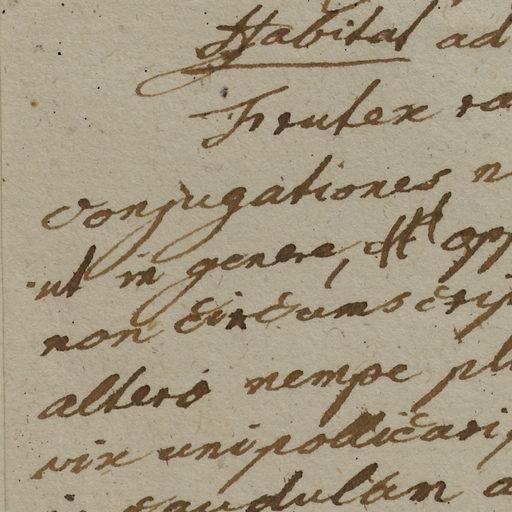 Habitat ad
Frutex
conjugationes
ut in genere,
non circumscrip
altero nempe pl
vix unipollicari
caudulam a